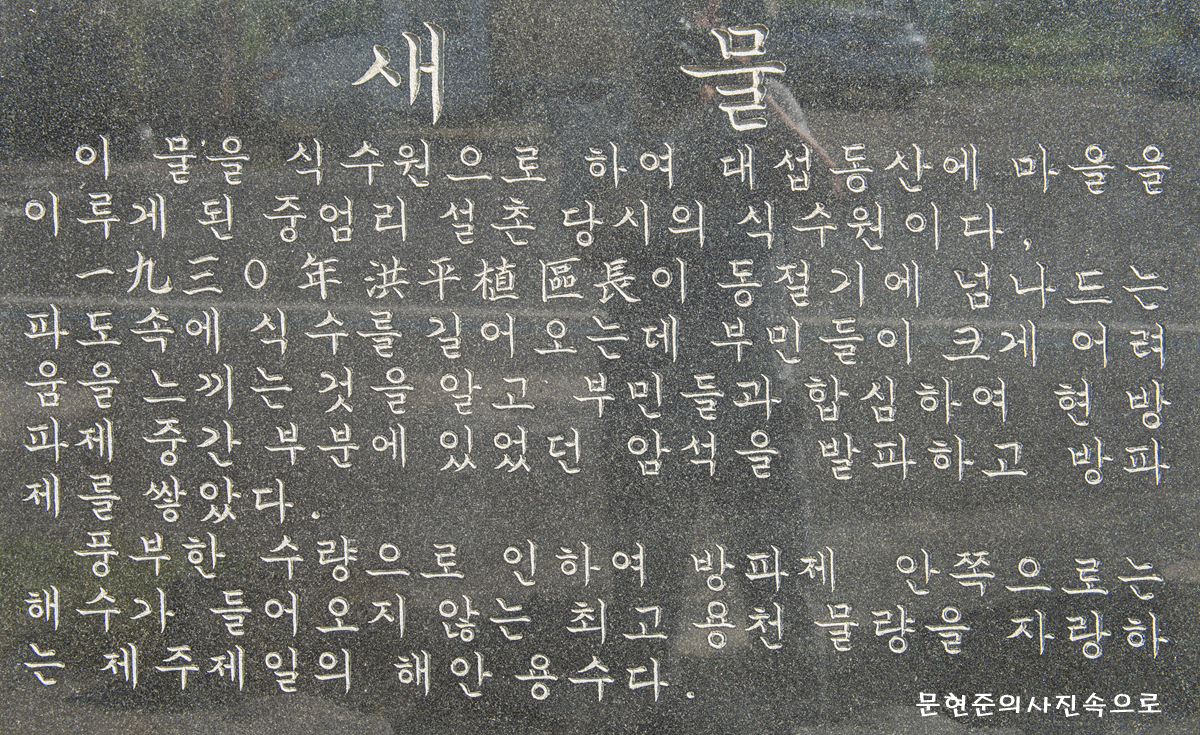 새 물
이 물을 식수원으로 하여 대섭동산에 마을을
이루게 된 중엄리 설촌 당시의 식수원이다,
一九三○年 洪平植區長이 동절기에 넘나드는
파도속에 식수를 길어오는데 부민들이 크게 어려
움을 느끼는 것을 알고 부민들과 합심하여 현 방
파제 중간 부분에 있었던 암석을 발파하고 방파
제를 쌓았다.
풍부한 수량으로 인하여 방파제 안쪽으로는
해수가 들어오지 않는 최고 용천 물량을 자랑하
는 제주제일의 해안 용수다.
문현준의사진속으로